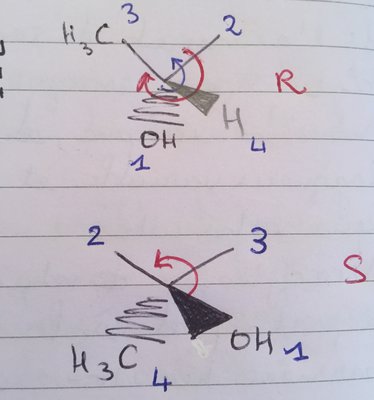 3
H₃C
2
R
H
OH
1
4
2
3
S
OH 1
H₃C
4